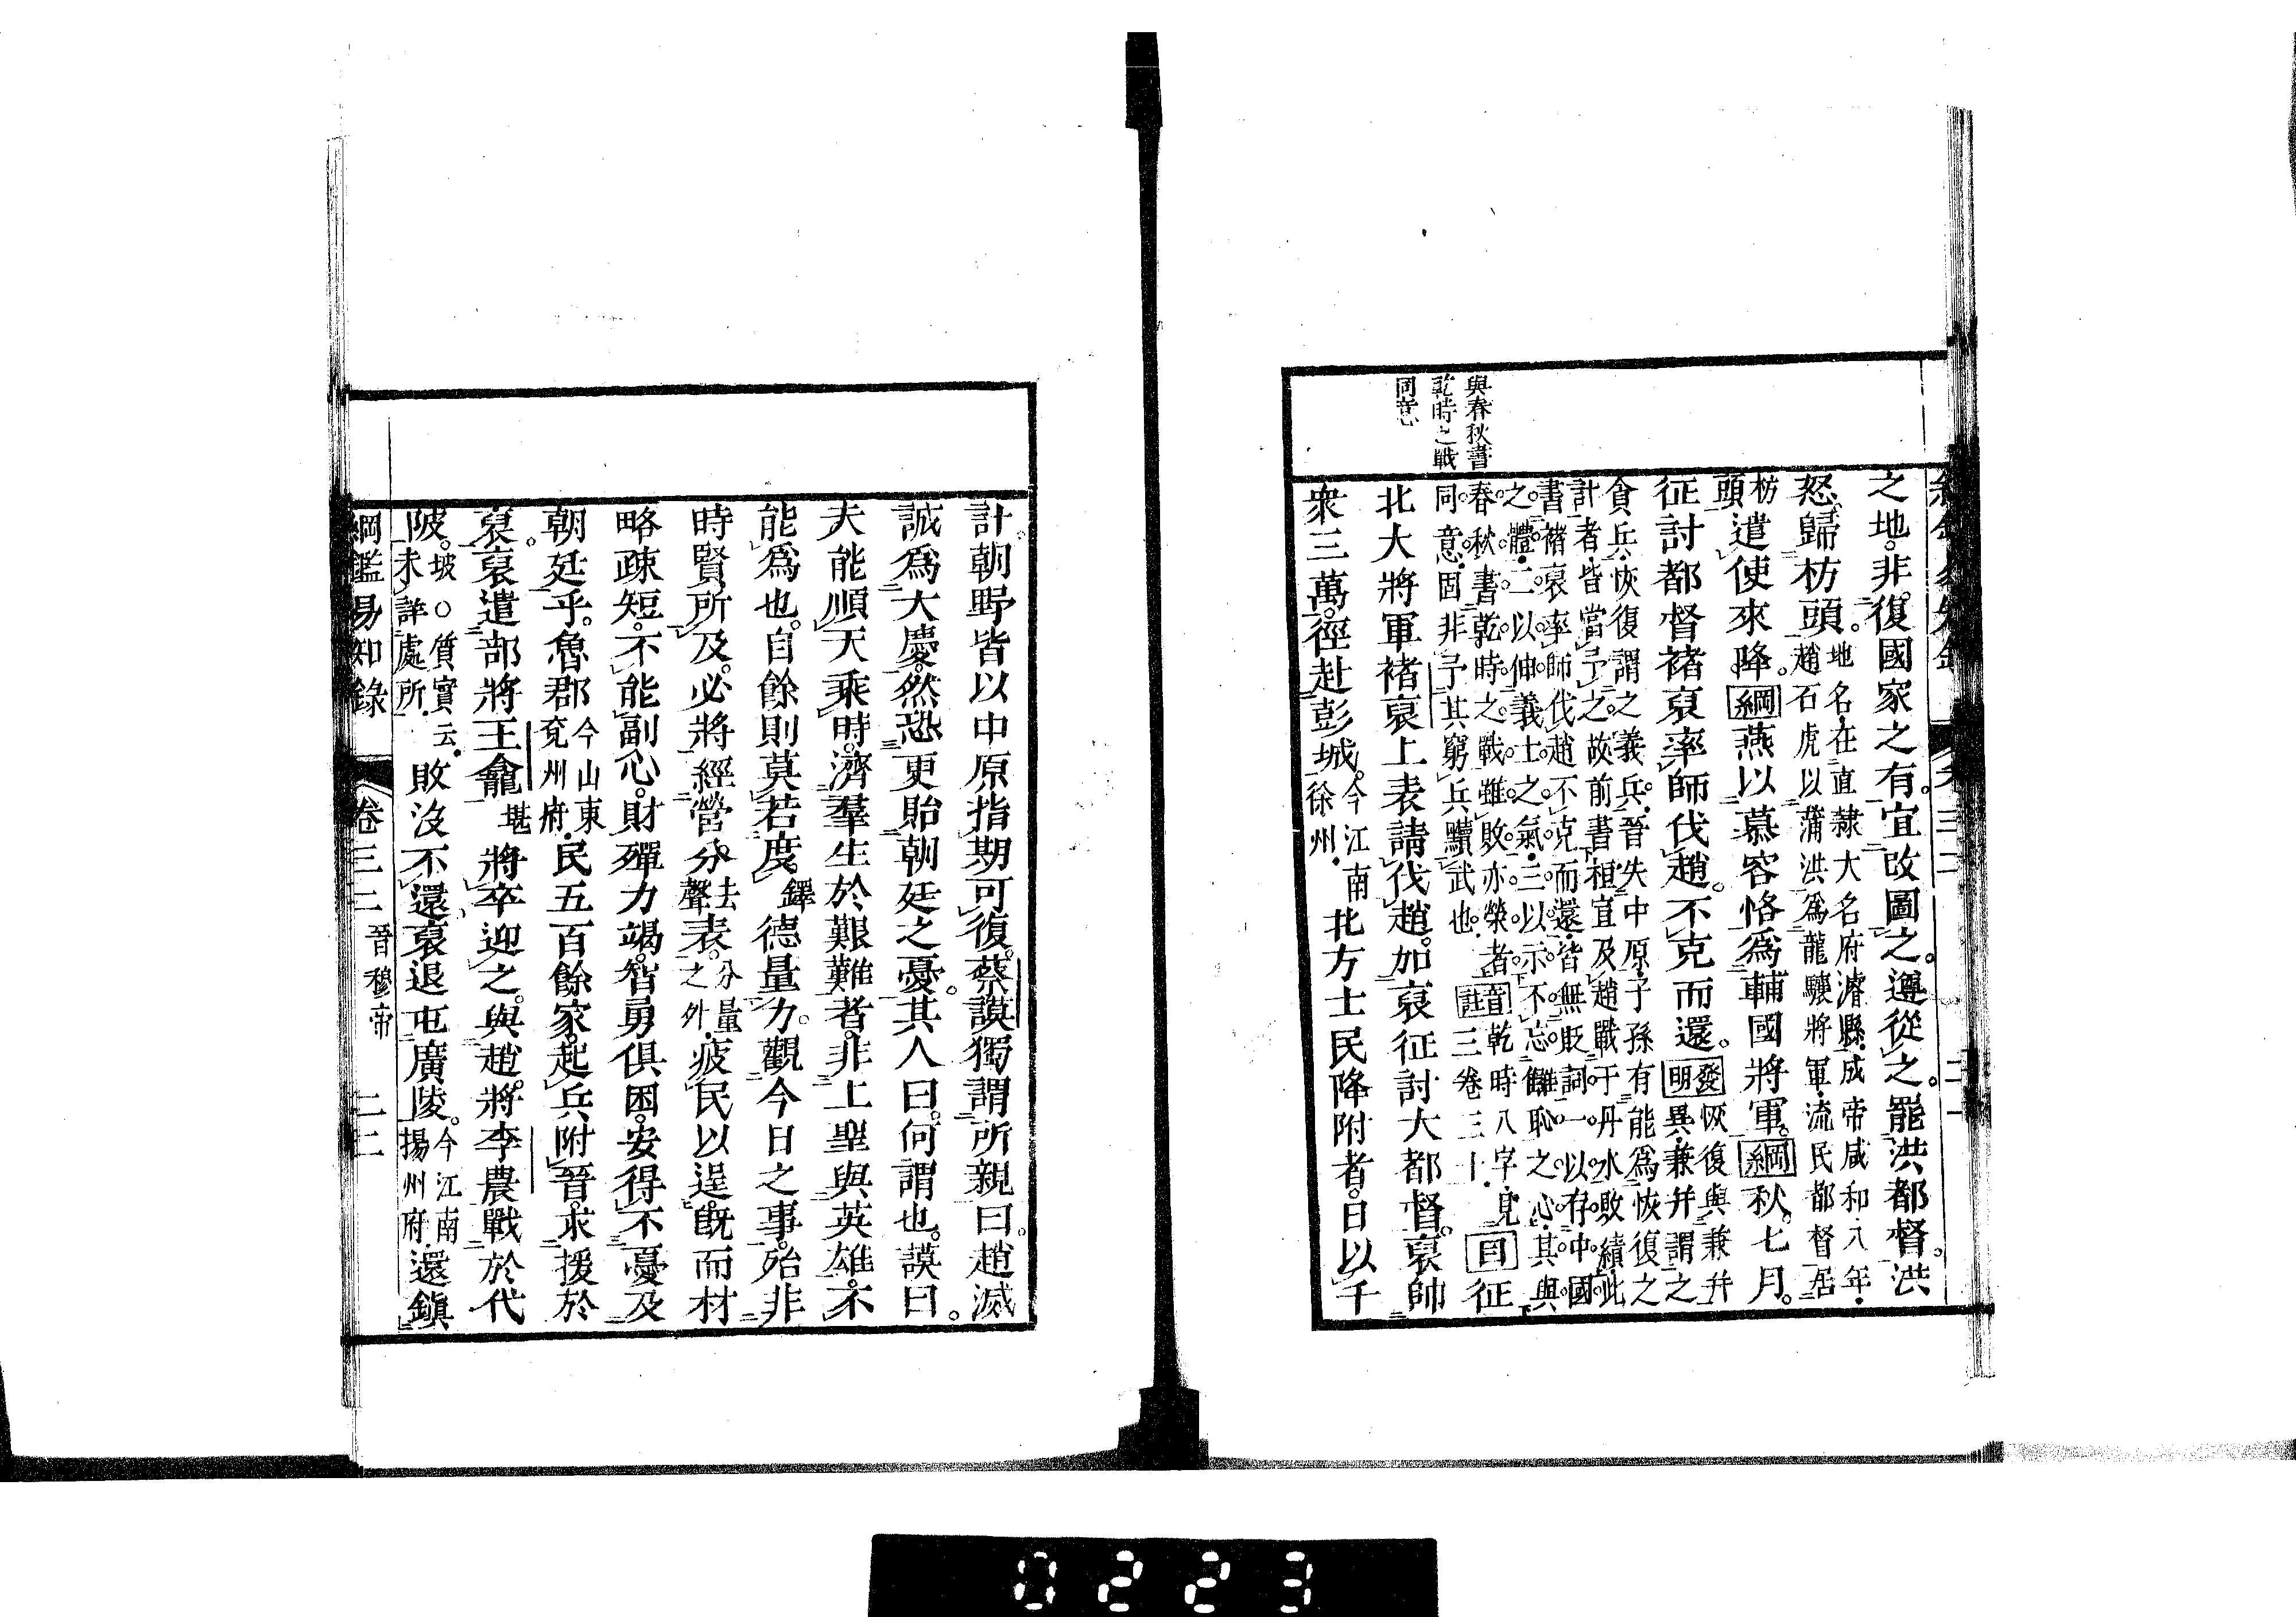 與春秋書
乾時之戰
同意
之地。非復國家之有。宜改圖之。遵從之。罷洪都督。洪
怒。歸枋頭。地名。在直隸大名府濬縣。成帝咸和八年。趙石虎以蒲洪爲龍驤將軍。流民都督。居
枋頭。遣使來降。綱燕以慕容恪爲輔國將軍。綱秋。七月。
征討都督褚裒率師伐趙。不克而還。發明恢復與兼幷異。兼幷謂之
貪兵。恢復謂之義兵。晉失中原。子孫有能爲恢復之
計者。皆當予之。故前書桓宣及趙戰于丹水敗績。此
書褚裒率師伐趙不克而還。皆無貶詞。一以存中國
之體。二以伸義士之氣。三以示不忘讎恥之心。其與
春秋書乾時之戰。雖敗亦榮者。音註乾時八字。見三卷三十。
同意。固非予其窮兵黷武也。目征
北大將軍褚裒上表請伐趙。加裒征討大都督。裒帥
衆三萬。徑赴彭城。今江南徐州。北方士民降附者。日以千
計。朝野皆以中原指期可復。蔡謨獨謂所親曰。趙滅
誠爲大慶。然恐更貽朝廷之憂。其人曰。何謂也。謨曰。
夫能順天乘時。濟羣生於艱難者。非上聖與英雄。不
能爲也。自餘則莫若度鐸德量力。觀今日之事。殆非
時賢所及。必將經營分去聲表。分量之外。疲民以逞。旣而材
略疎短。不能副心。財殫力竭。智勇俱困。安得不憂及
朝廷乎。魯郡今山東兗州府。民五百餘家。起兵附晉。求援於
裒。裒遣部將王龕堪將卒迎之。與趙將李農戰於代
陂。坡○質實云。未詳處所。敗沒不還。裒退屯廣陵。今江南揚州府。還鎭
綱鑑易知錄 卷三二 晉穆帝 二二